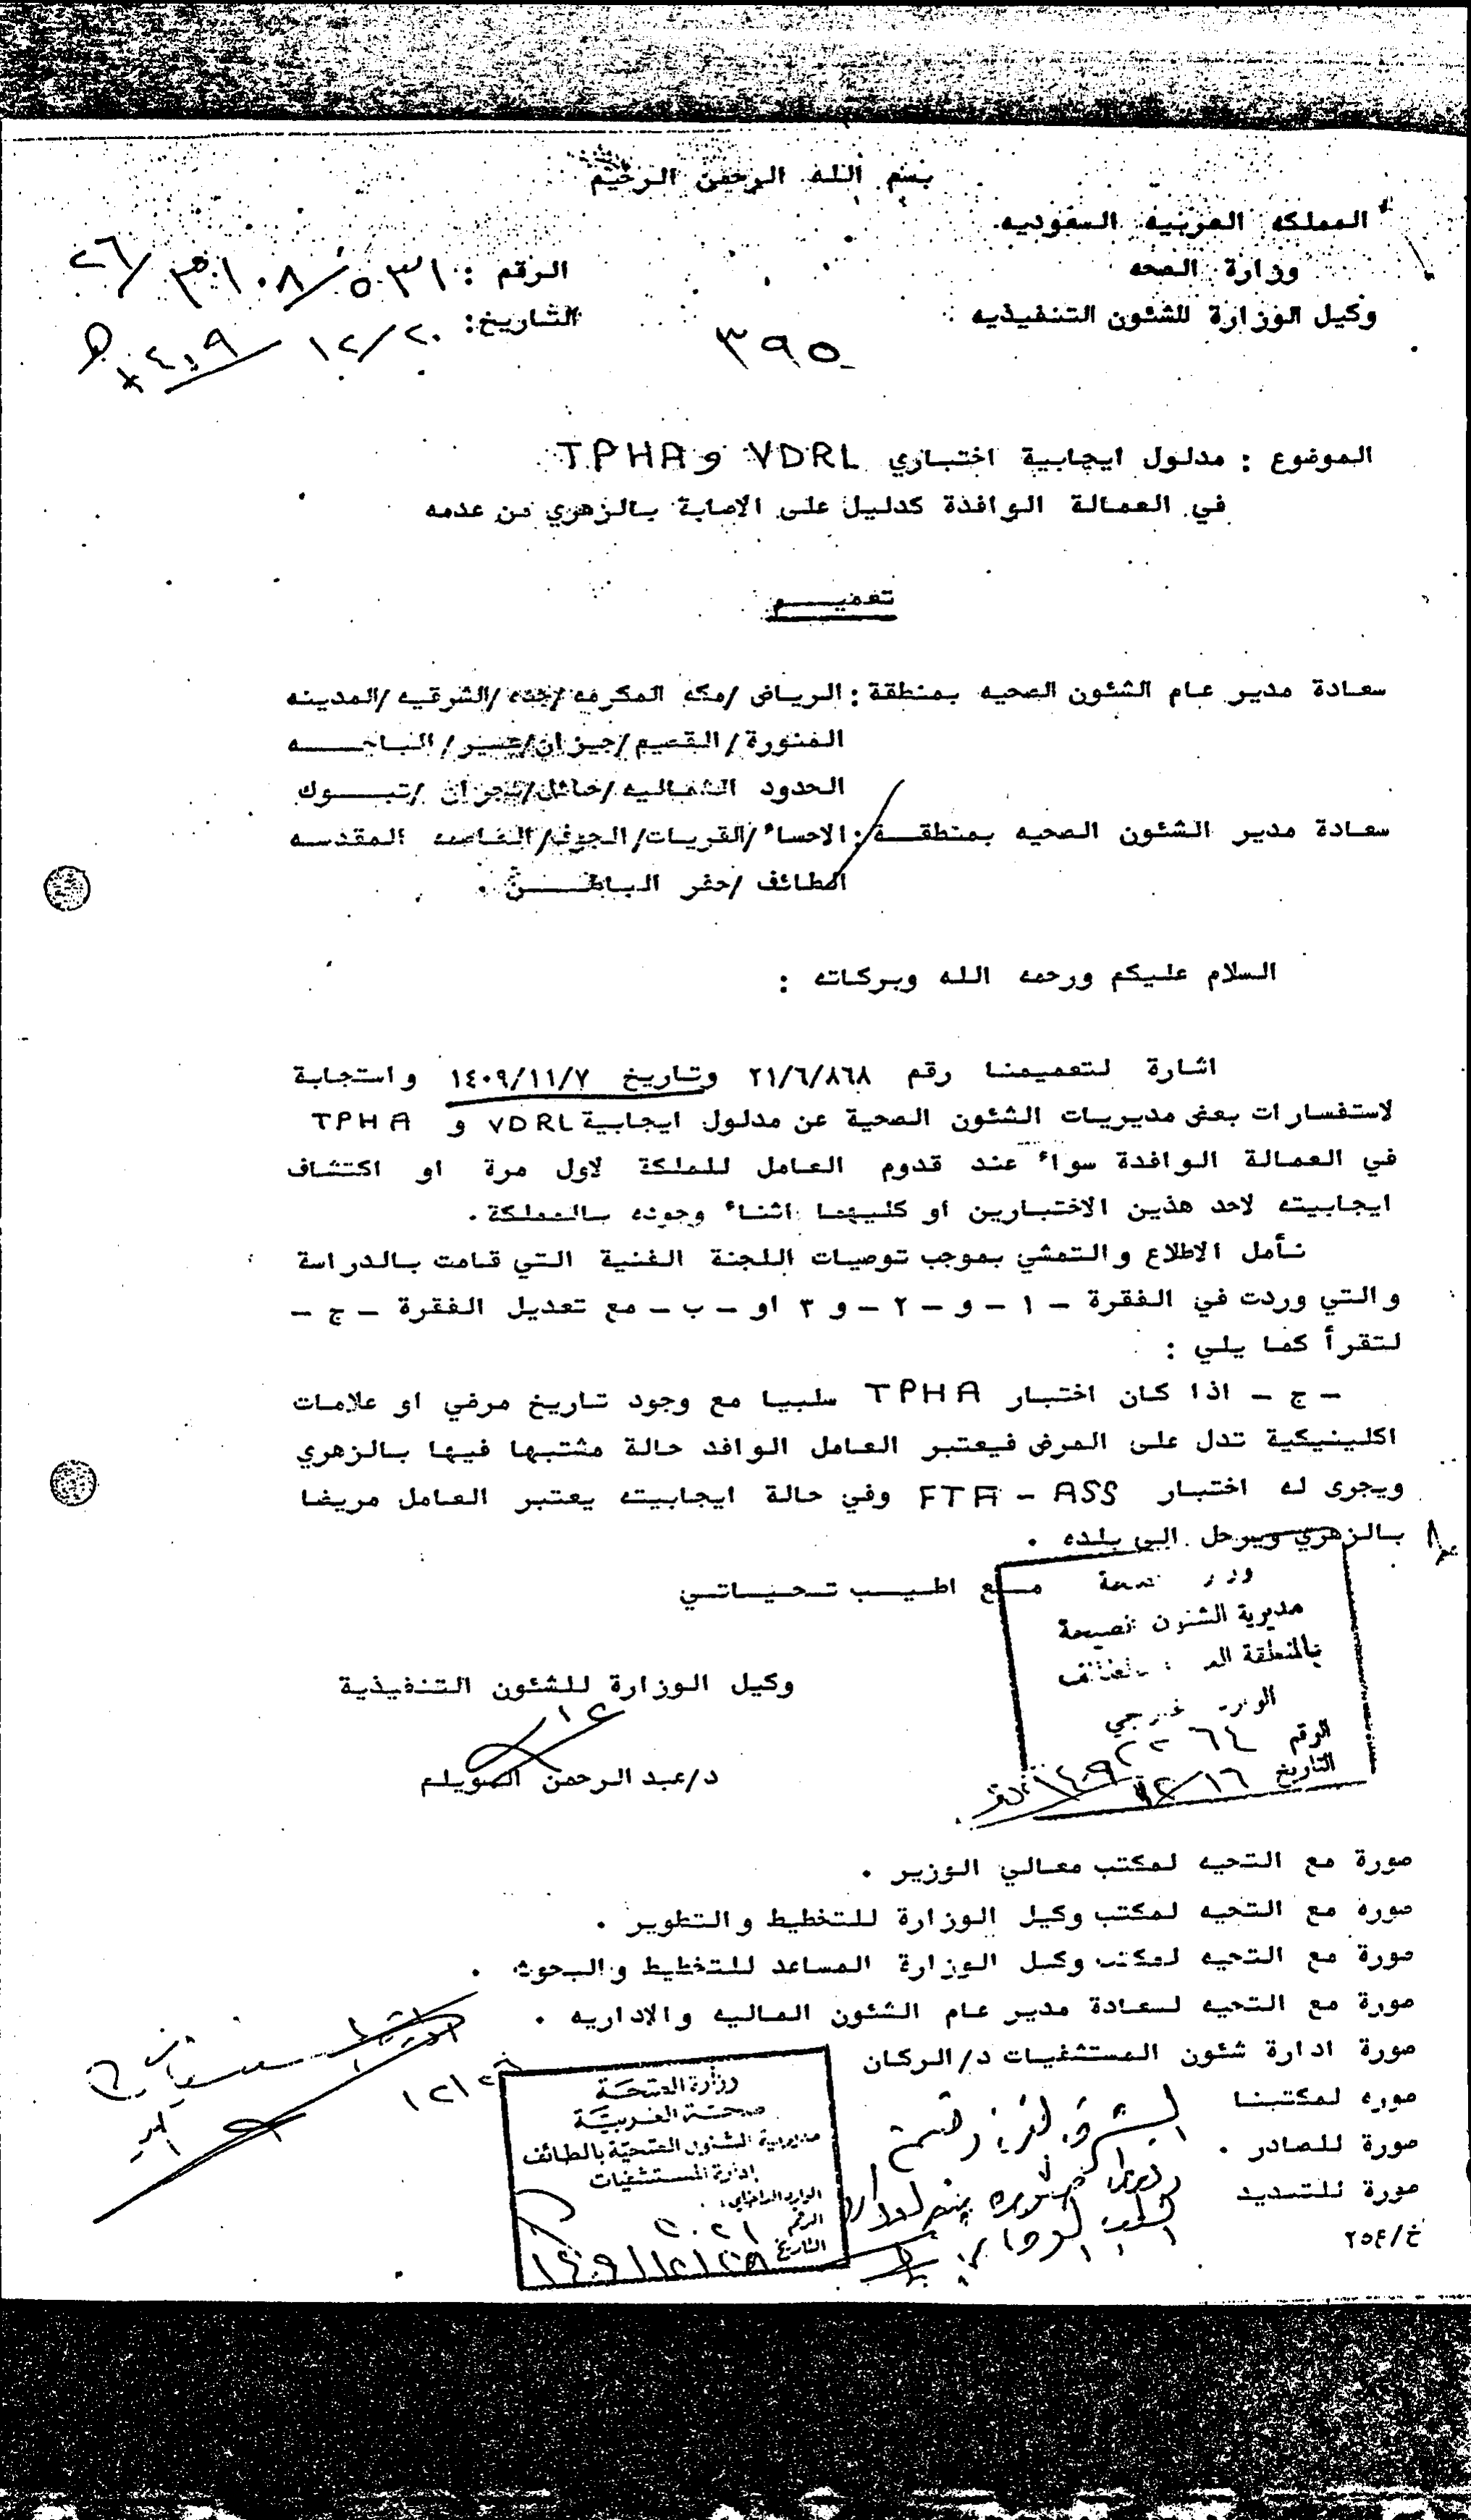 بسم الله الرحمن الرحيم
المملكه العربيه السعوديه
وزارة الصحه
وكيل الوزارة للشئون التنفيذيه
الرقم :
التاريخ: ١٢/٢٠
٣٩٥
الموضوع : مدلول ايجابية اختباري VDRL و TPHA
في العمالة الوافدة كدليل على الاصابة بالزهري من عدمه
تعميــــم
سعادة مدير عام الشئون الصحيه بمنطقة : الرياض /مكه المكرمه /جده /الشرقيه /المدينه
المنورة /القصيم /جيزان/عسير/ الباحــــه
الحدود الشماليه /حائل/نجران /تبــــوك
سعادة مدير الشئون الصحيه بمنطقــة : الاحساء /القريات/ الجوف/العاصمه المقدسه
الطائف /حفر الباطــــن .
السلام عليكم ورحمه الله وبركاته :
اشارة لتعميمنا رقم ٢١/٦/٨٦٨ وتاريخ ١٤٠٩/١١/٧ واستجابة
لاستفسارات بعض مديريات الشئون الصحية عن مدلول ايجابية VDRL و TPHA
في العمالة الوافدة سواء عند قدوم العامل للملكة لاول مرة او اكتشاف
ايجابيته لاحد هذين الاختبارين او كليهما اثناء وجوده بالمملكة .
نأمل الاطلاع والتمشي بموجب توصيات اللجنة الفنية التي قامت بالدراسة
والتي وردت في الفقرة - ١ - و - ٢ - و ٣ او - ب - مع تعديل الفقرة - ج -
لتقرأ كما يلي :
- ج - اذا كان اختبار TPHA سلبيا مع وجود تاريخ مرضي او علامات
اكلينيكية تدل على المرض فيعتبر العامل الوافد حالة مشتبها فيها بالزهري
ويجرى له اختبار FTA - ASS وفي حالة ايجابيته يعتبر العامل مريضا
بالزهري ويرحل الى بلده .
مــع اطيــب تـحيـاتـي
مديرية الشئون الصحية
الرقم
التاريخ ١٢/١٦
وكيل الوزارة للشئون التنفيذية
د/عبد الرحمن السويلم
صورة مع التحيه لمكتب معالي الوزير .
صوره مع التحيه لمكتب وكيل الوزارة للتخطيط والتطوير .
صورة مع التحيه لمكتب وكيل الوزارة المساعد للتخطيط والبحوث .
صورة مع التحيه لسعادة مدير عام الشئون الماليه والاداريه .
صورة ادارة شئون المستشفيات د/الركان
صوره لمكتبنا
صورة للصادر .
صورة للتسديد
خ/٢٥٤
وزارة الصحة
صحة الغربية
مديرية الشئون الصحية بالطائف
إدارة المستشفيات
الوارد الداخلي
الرقم
التاريخ ١٤٠٩/١٢/٢٨